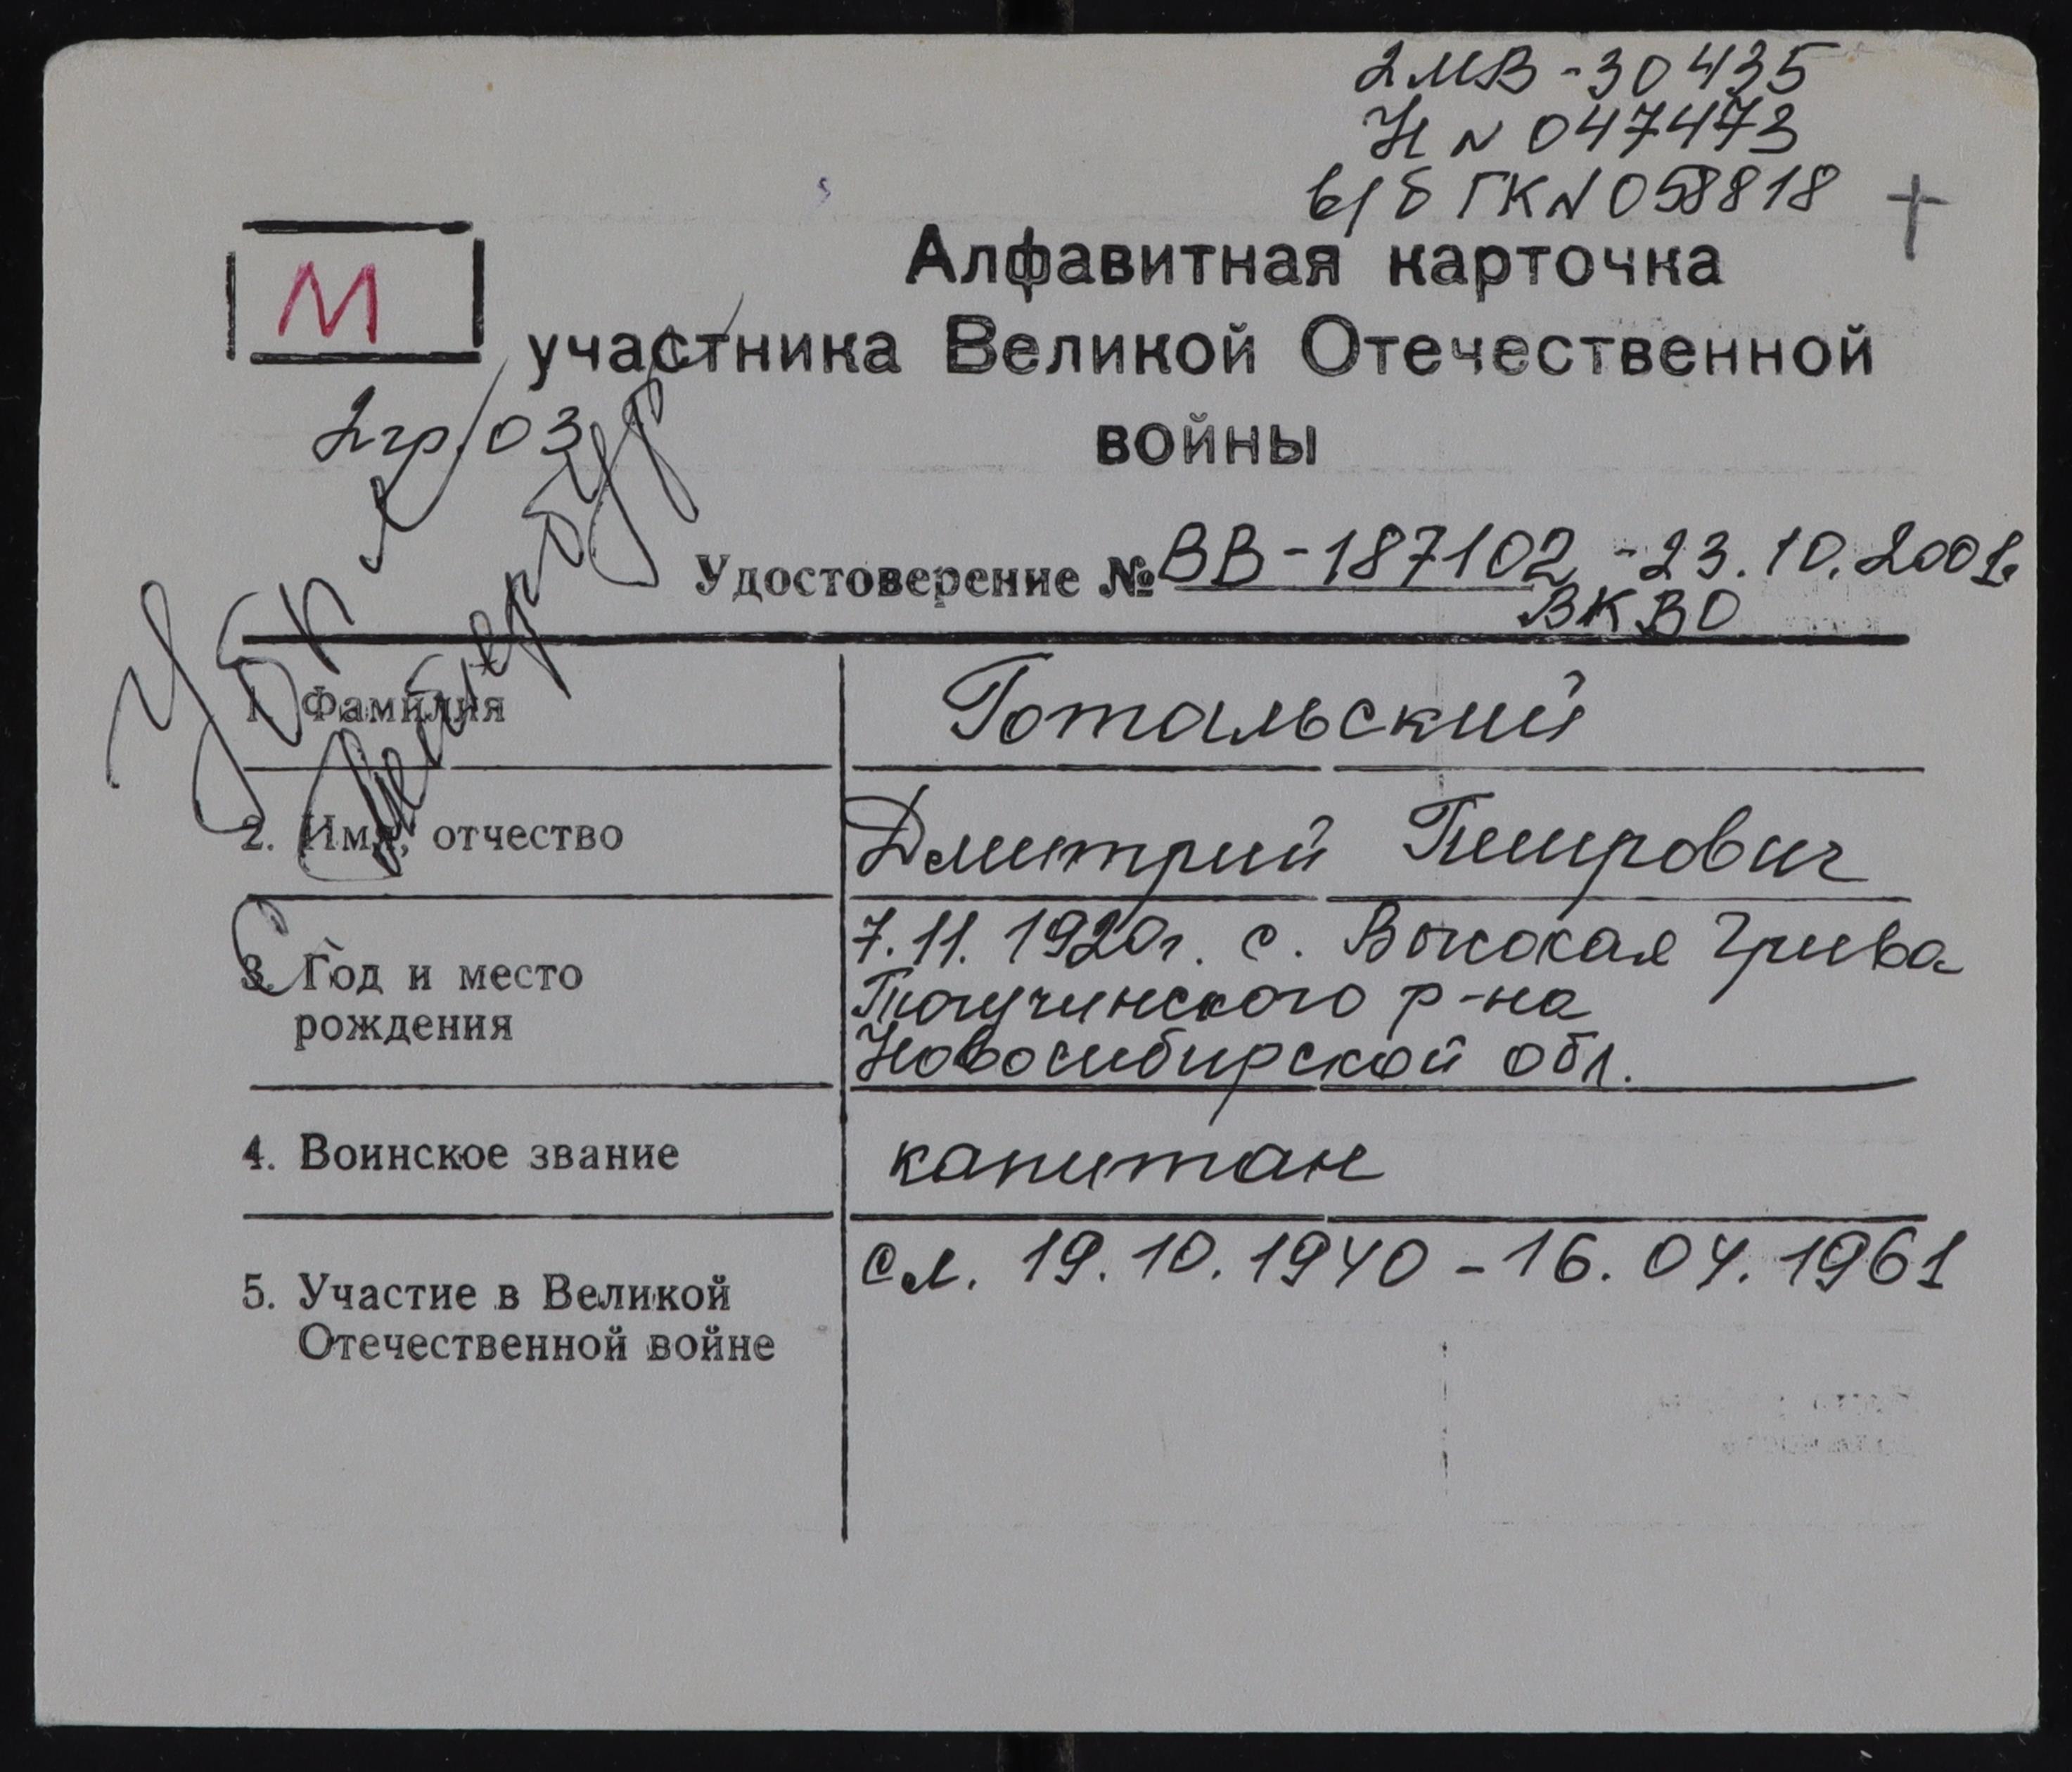 2МВ-30435
Н № 047473
в/б ГК№058818
М
Алфавитная карточка
участника Великой Отечественной
войны
2гр. 03
Удостоверение № ВВ-187102 -23.10.2001г.
ВКВО
Убыл
1. Фамилия
Готальский
2. Имя, отчество
Дмитрий Петрович
3. Год и место
рождения
7.11.1920г. с. Высокая Грива
Тогучинского р-на
Новосибирской обл.
4. Воинское звание
капитан
5. Участие в Великой
Отечественной войне
сл. 19.10.1940-16.04.1961